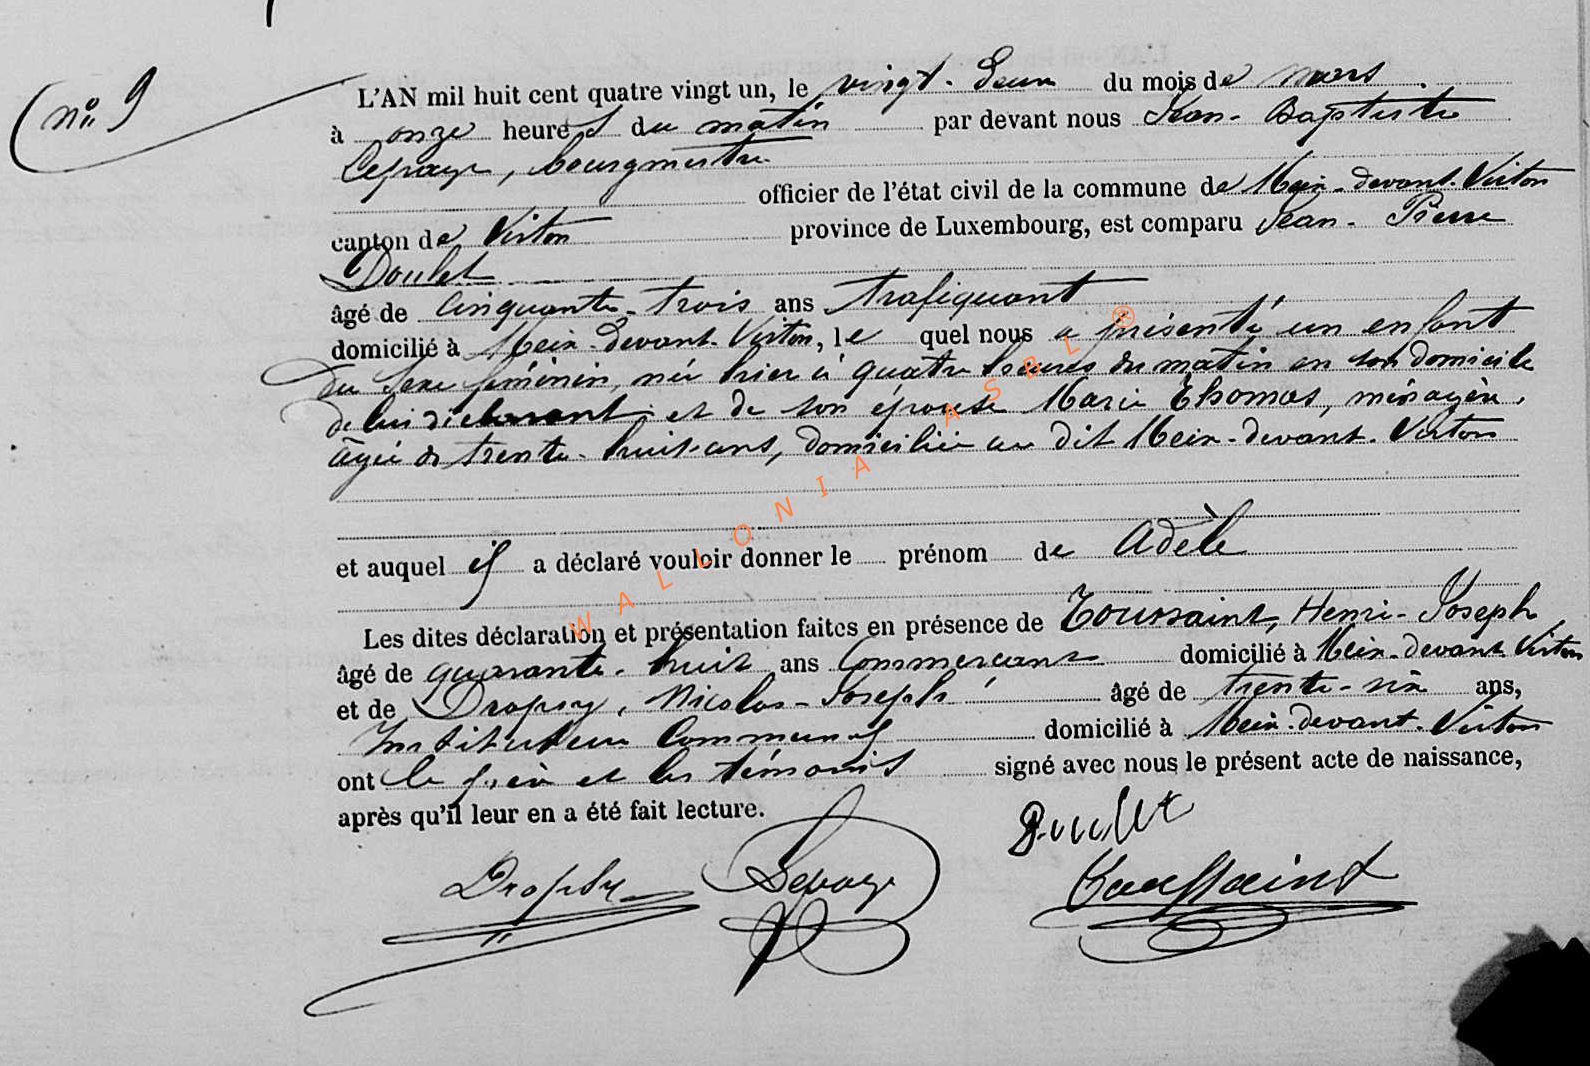 n° 9
L'AN mil huit cent quatre vingt un, le vingt-deux du mois de mars
à onze heures du matin par devant nous Jean-Baptiste
Lepage, bourgmestre
officier de l'état civil de la commune de Meix-devant-Virton
canton de Virton province de Luxembourg, est comparu Jean-Pierre
Doulet
âgé de cinquante-trois ans trafiquant
domicilié à Meix-devant-Virton, le quel nous a présenté un enfant
du sexe féminin, née hier à quatre heures du matin en son domicile
de lui déclarant et de son épouse Marie Thomas, ménagère,
âgée de trente-huit ans, domiciliée au dit Meix-devant-Virton
et auquel il a déclaré vouloir donner le prénom de Adèle
Les dites déclaration et présentation faites en présence de Toussaint, Henri-Joseph
âgé de quarante-huit ans Commerçant domicilié à Meix-devant-Virton
et de Dropsy, Nicolas-Joseph âgé de trente-six ans,
Instituteur Communal domicilié à Meix-devant-Virton
ont le père et les témoins signé avec nous le présent acte de naissance,
après qu'il leur en a été fait lecture.
Doulet
Dropsy Lepage Toussaint
WALLONIA ASBL ®